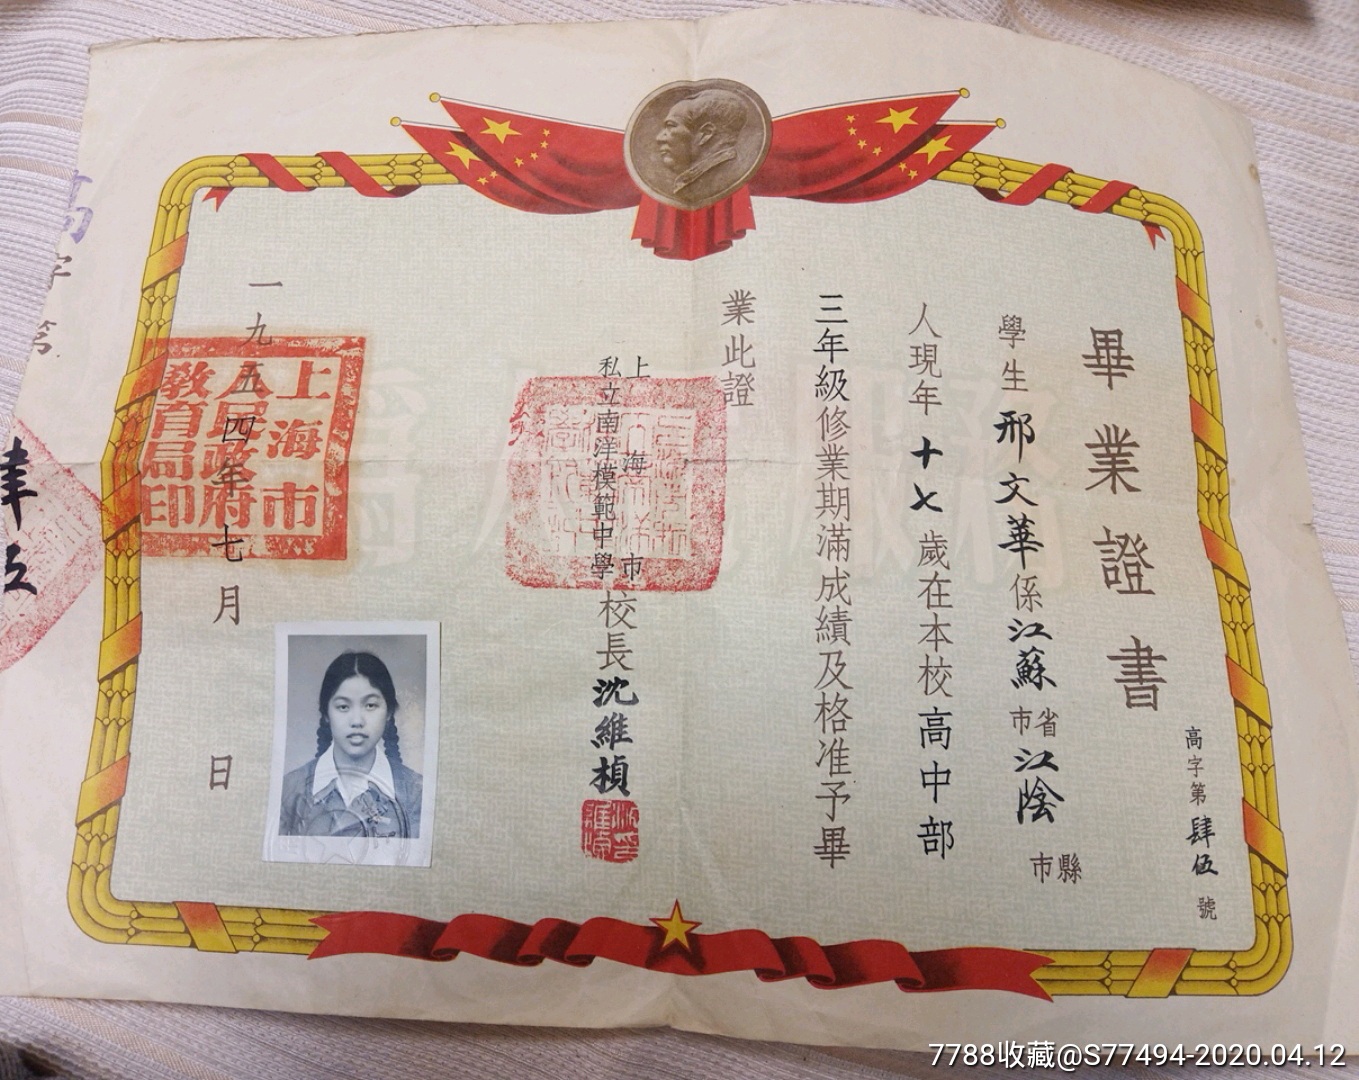 畢業證書
高字第肆伍號
學生邢文華係江蘇省市江陰縣市
人現年十七歲在本校高中部
三年級修業期滿成績及格准予畢
業此證
上海市
私立南洋模範中學校長沈維楨
一九五四年七月 日
上海市
人民政府
教育局印
高字第
肆伍
7788收藏@S77494-2020.04.12